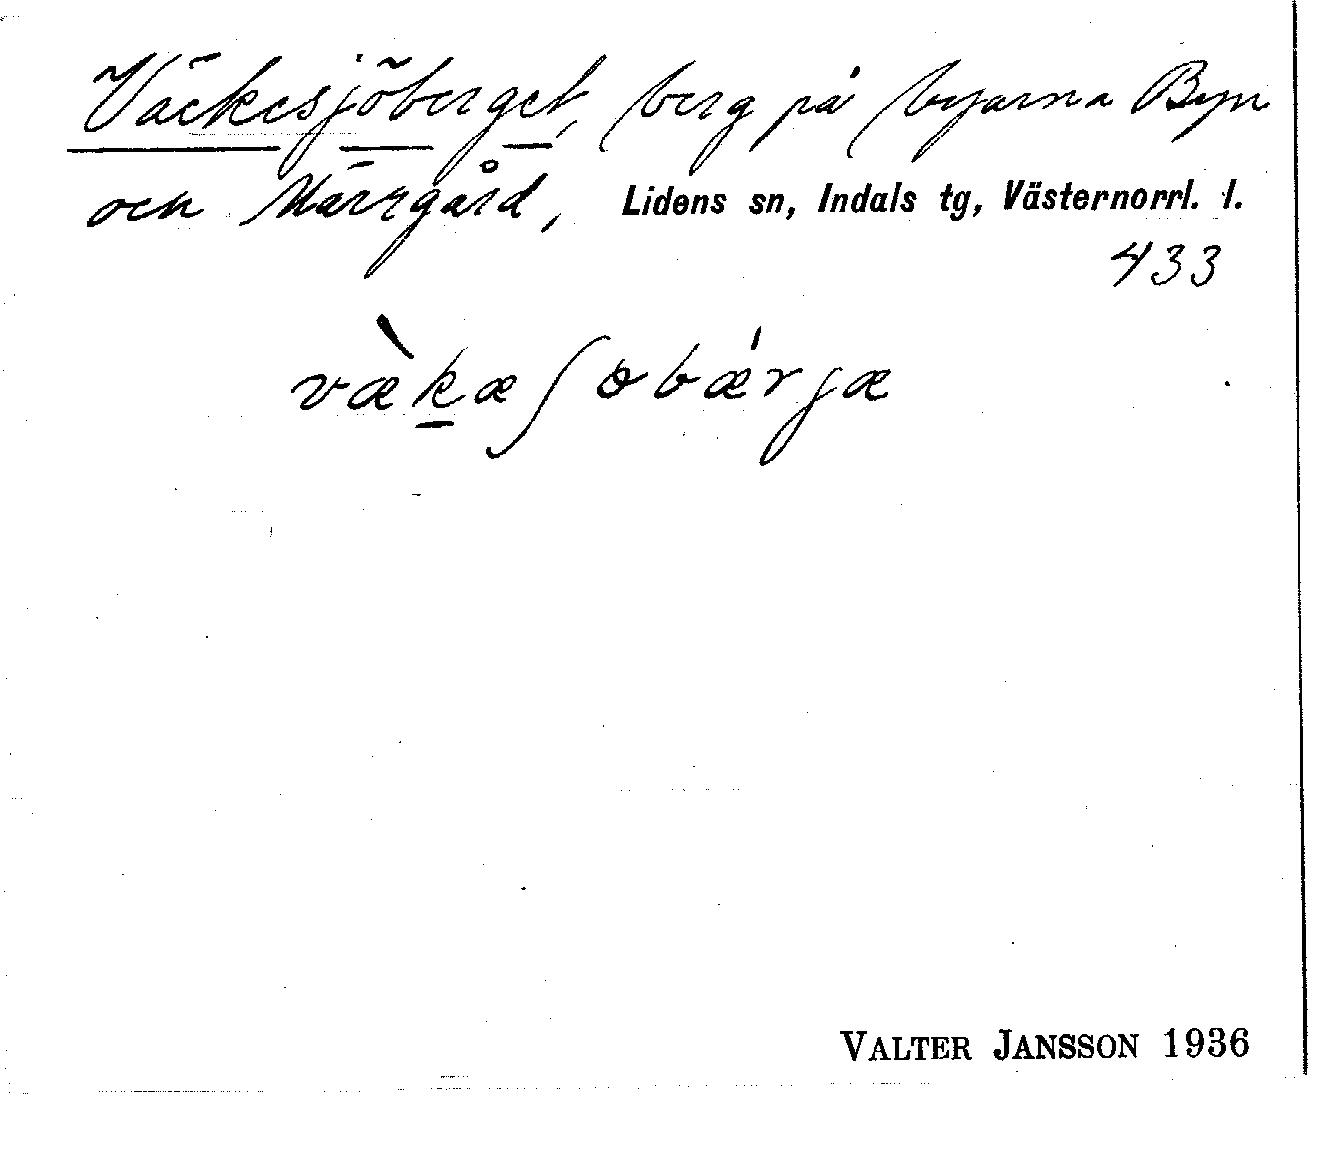 Väckesjöberget, berg på byarna Byn
och Märrgård, Lidens sn, Indals tg, Västernorrl. l.
433
væ̀kæʃobǽrjæ
VALTER JANSSON 1936